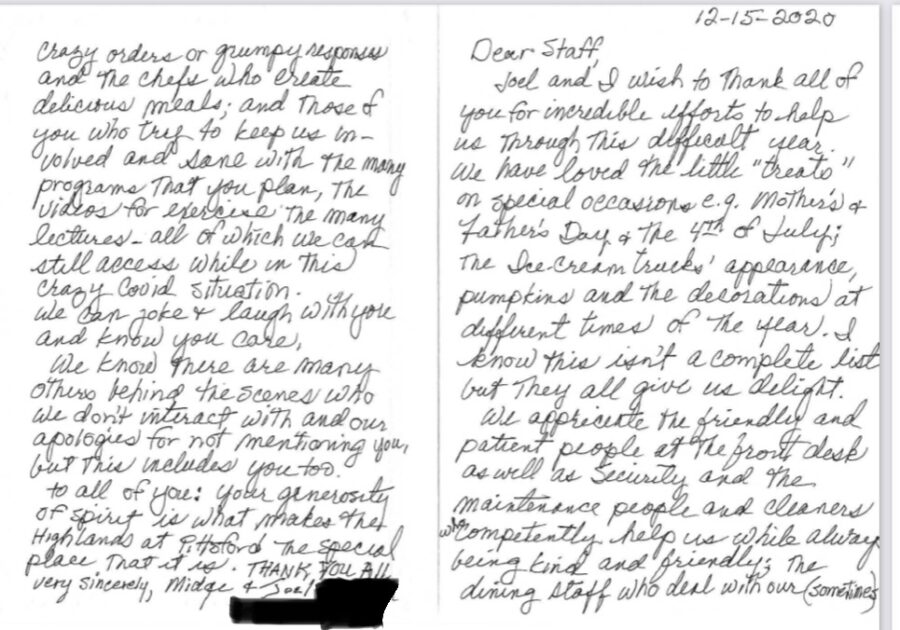 12-15-2020
Dear Staff,
Joel and I wish to thank all of
you for incredible efforts to help
us through this difficult year.
We have loved the little "treats"
on special occasions e.g. Mother's &
Father's Day & the 4th of July;
the Ice-cream trucks' appearance,
pumpkins and the decorations at
different times of the year. I
know this isn't a complete list
but they all give us delight.
We appriciate the friendly and
patient people at the front desk
as well as Security and the
maintenance people and cleaners
who competently help us while always
being kind and friendly; the
dining staff who deal with our (sometimes)
crazy orders or grumpy responses
and the chefs who create
delicious meals; and those of
you who try to keep us in-
volved and sane with the many
programs that you plan, the
videos for exercise the many
lectures - all of which we can
still access while in this
crazy Covid situation.
We can joke & laugh with you
and know you care.
We know there are many
others behind the scenes who
we don't interact with and our
apologies for not mentioning you,
but this includes you too.
To all of you: your generosity
of spirit is what makes the
Highlands at Pittsford the special
place that it is. THANK YOU ALL
very sincerely, Midge & Joel